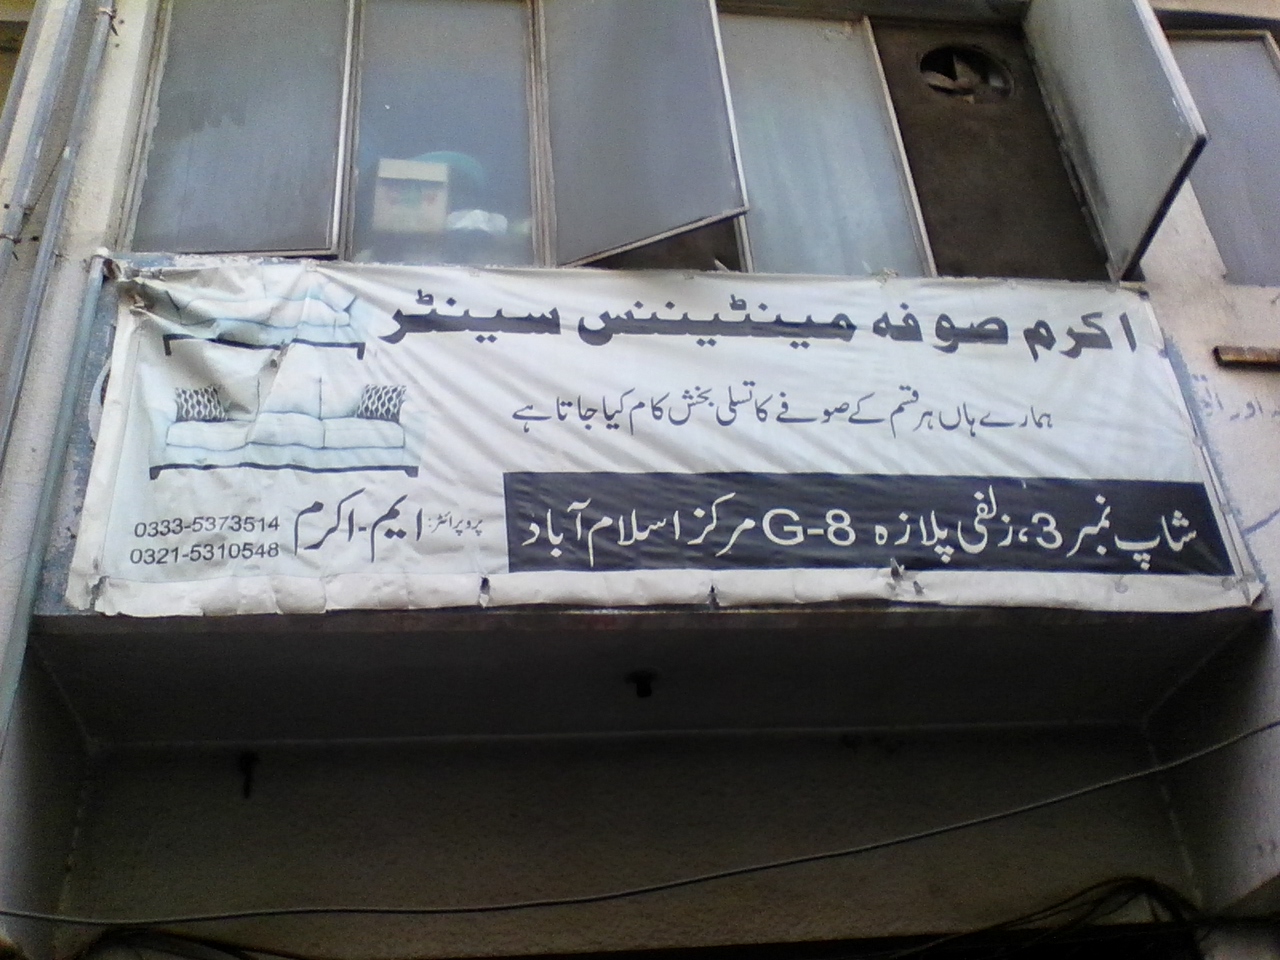 اکرم صوفہ مینٹیننس سینٹر
ہمارے ہاں ہر قسم کے صوفے کا تسلی بخش کام کیا جاتا ہے
شاپ نمبر 3، زلفی پلازہ G-8 مرکز اسلام آباد
پروپرائٹر: ایم-اکرم
0333-5373514
0321-5310548
اور